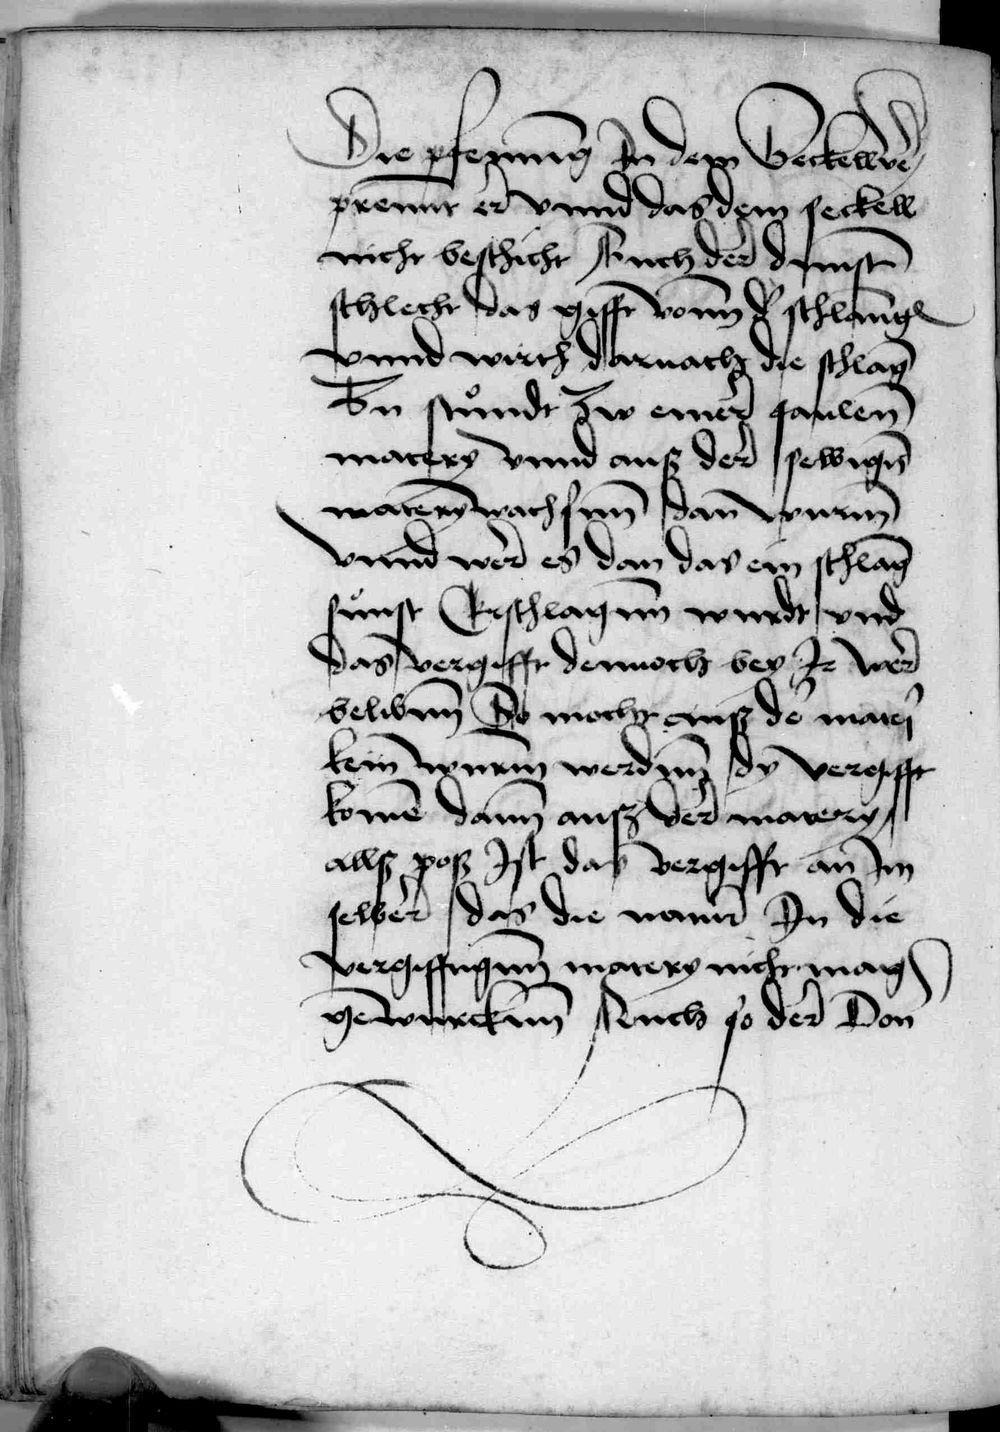 Die pfenning In dem Seckell ver
prennt er vnnd das dem seckell
nicht beschicht Auch der dunst
schlecht das gifft vonn d schlang
vnnd wirth darnach die schlang
Zu stundt Zw einer faulen
matery vnnd auß der selbigen
matery wachssenn dan wurm
vnnd wer es dan das ein schlang
sunst Erschlagenn wurdt vnd
das vergifft dennoch bey Ir wer
belibenn So mocht auß der materi
kein wurm werdenn dy vergifft
kome dann auß der matery
allß poß Ist das vergifft an Im
selber das die natur In die
vergifftigenn matery nicht mag
gewurckenn Auch so der Don